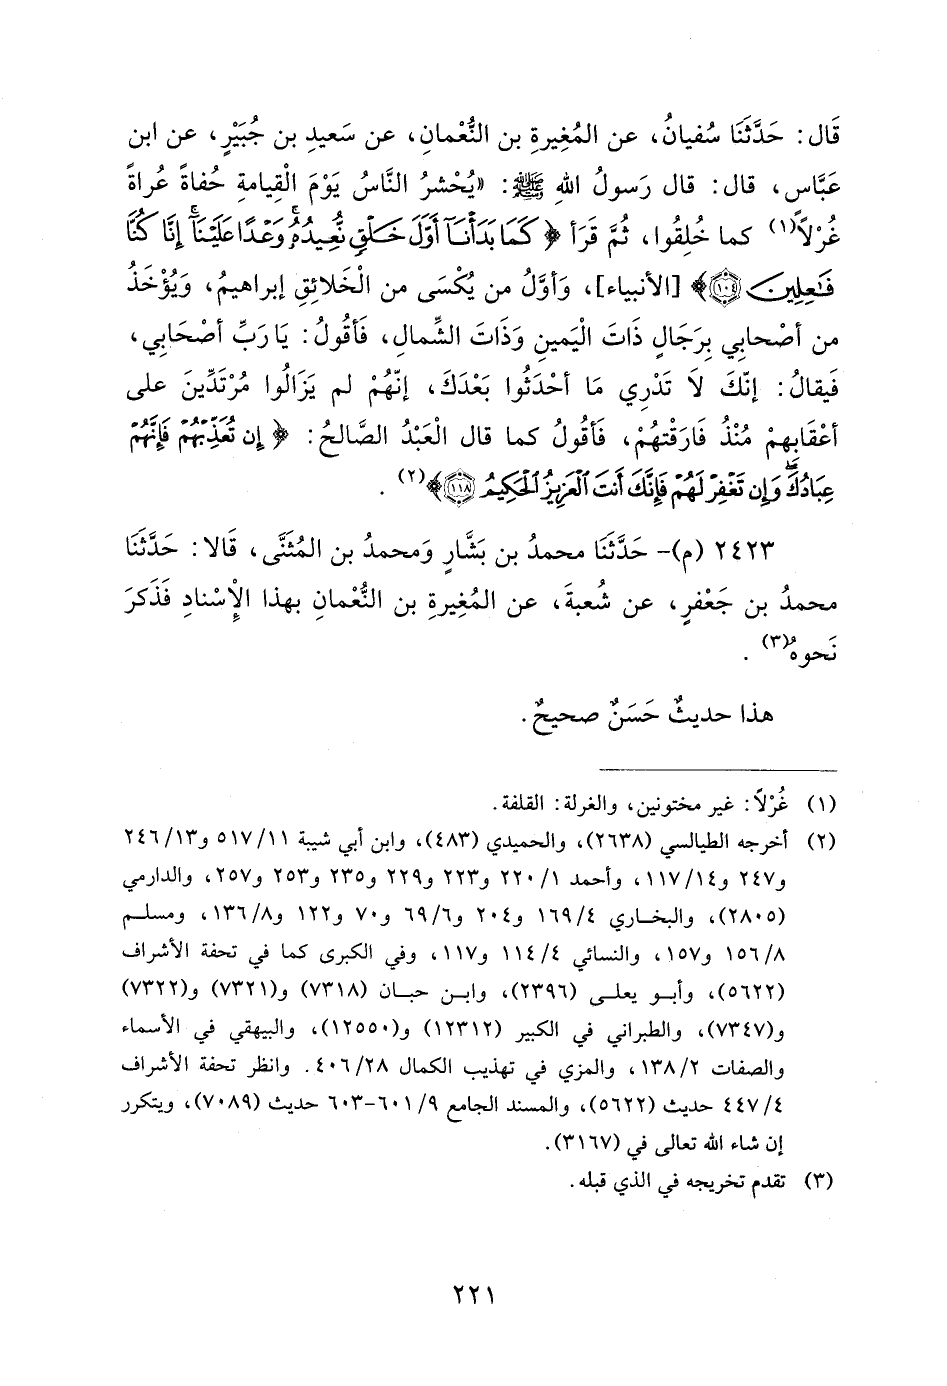 قَال: حَدَّثَنَا سُفيانُ، عن المُغِيرةِ بن النُّعْمانِ، عن سَعيدِ بن جُبَيْرٍ، عن ابن
عَبَّاسٍ، قال: قال رَسولُ اللهِ ﷺ: «يُحْشرُ النَّاسُ يَوْمَ الْقِيامةِ حُفاةً عُراةً
غُرْلاً(١) كما خُلِقُوا، ثُمَّ قرَأ ﴿كَمَا بَدَأْنَا أَوَّلَ خَلْقٍ نُّعِيدُهُ وَعْدًا عَلَيْنَا إِنَّا كُنَّا
فَاعِلِينَ ١٠٤﴾ [الأنبياء]، وَأوَّلُ من يُكْسَى من الْخَلائِقِ إبراهيمُ، وَيُؤْخَذُ
من أصْحابي بِرَجَالٍ ذَاتَ الْيَمينِ وَذَاتَ الشِّمالِ، فَأقُولُ: يَا رَبِّ أصْحَابِي،
فَيقالُ: إنّكَ لاَ تَدْرِي مَا أحْدَثُوا بَعْدَكَ، إنّهُمْ لم يَزَالُوا مُرْتَدِّينَ على
أعْقَابِهمْ مُنْذُ فَارَقْتَهُمْ، فَأقُولُ كما قال الْعَبْدُ الصَّالحُ: ﴿إِن تُعَذِّبْهُمْ فَإِنَّهُمْ
عِبَادُكَ وَإِن تَغْفِرْ لَهُمْ فَإِنَّكَ أَنتَ الْعَزِيزُ الْحَكِيمُ ١١٨﴾(٢).
٢٤٢٣ (م)- حَدَّثَنَا محمدُ بن بَشَّارٍ وَمحمدُ بن المُثَنَّى، قَالا: حَدَّثَنَا
محمدُ بن جَعْفرٍ، عن شُعبةَ، عن المُغِيرةِ بن النُّعْمانِ بهذا الإْسْنادِ فَذَكرَ
نَحوهُ(٣).
هذا حديثٌ حَسَنٌ صحيحٌ.
(١) غُرْلاً: غير مختونين، والغرلة: القلفة.
(٢) أخرجه الطيالسي (٢٦٣٨)، والحميدي (٤٨٣)، وابن أبي شيبة ٥١٧/١١ و٢٤٦/١٣
و٢٤٧ و١١٧/١٤، وأحمد ٢٢٠/١ و٢٢٣ و٢٢٩ و٢٣٥ و٢٥٣ و٢٥٧، والدارمي
(٢٨٠٥)، والبخاري ١٦٩/٤ و٢٠٤ و٦٩/٦ و٧٠ و١٢٢ و١٣٦/٨، ومسلم
١٥٦/٨ و١٥٧، والنسائي ١١٤/٤ و١١٧، وفي الكبرى كما في تحفة الأشراف
(٥٦٢٢)، وأبو يعلى (٢٣٩٦)، وابن حبان (٧٣١٨) و(٧٣٢١) و(٧٣٢٢)
و(٧٣٤٧)، والطبراني في الكبير (١٢٣١٢) و(١٢٥٥٠)، والبيهقي في الأسماء
والصفات ١٣٨/٢، والمزي في تهذيب الكمال ٤٠٦/٢٨. وانظر تحفة الأشراف
٤٤٧/٤ حديث (٥٦٢٢)، والمسند الجامع ٦٠١/٩-٦٠٣ حديث (٧٠٨٩)، ويتكرر
إن شاء الله تعالى في (٣١٦٧).
(٣) تقدم تخريجه في الذي قبله.
٢٢١